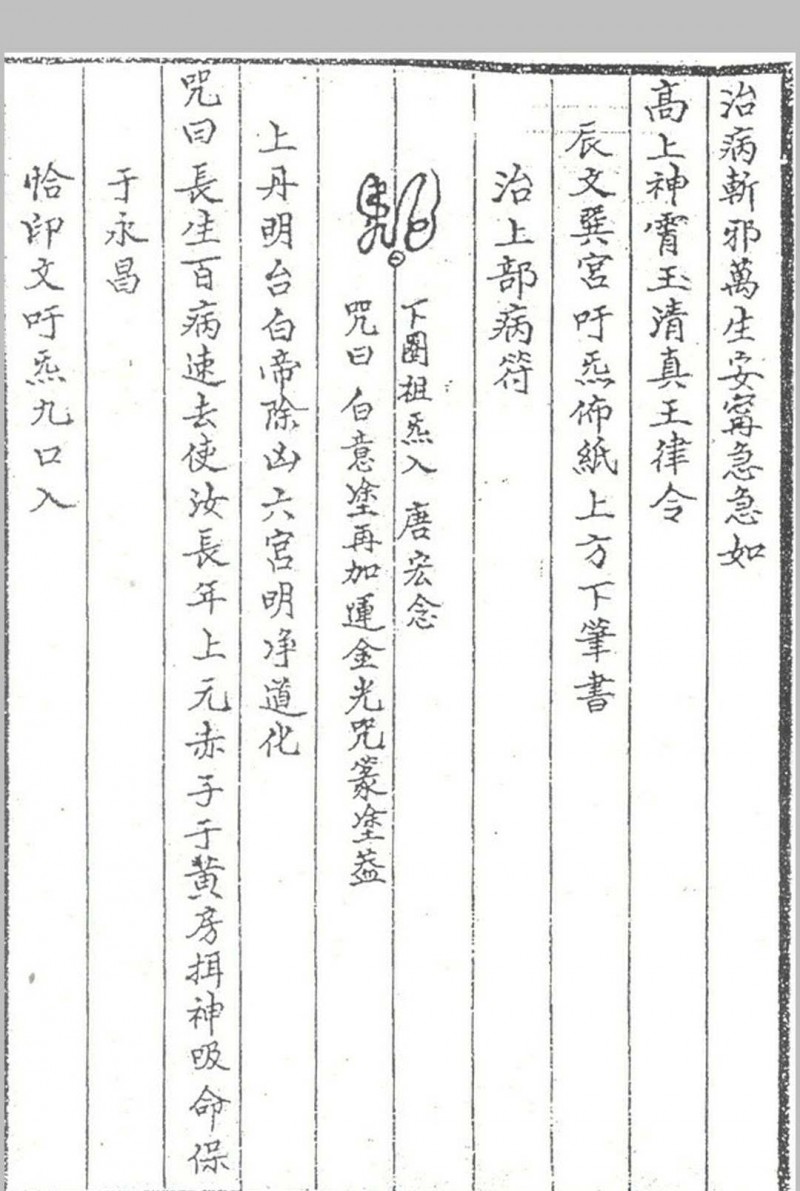 治病斬邪萬生安寗急急如
高上神霄玉清真王律令
辰文巽宮吁炁佈紙上方下筆書
治上部病符
下圈祖炁入 唐宏念
咒曰 白意塗再加運金光咒篆塗葢
上丹明台白帝除凶六宮明净道化
咒曰長生百病速去使汝長年上元赤子于黄房揖神吸命保
于永昌
恰印文吁炁九口入